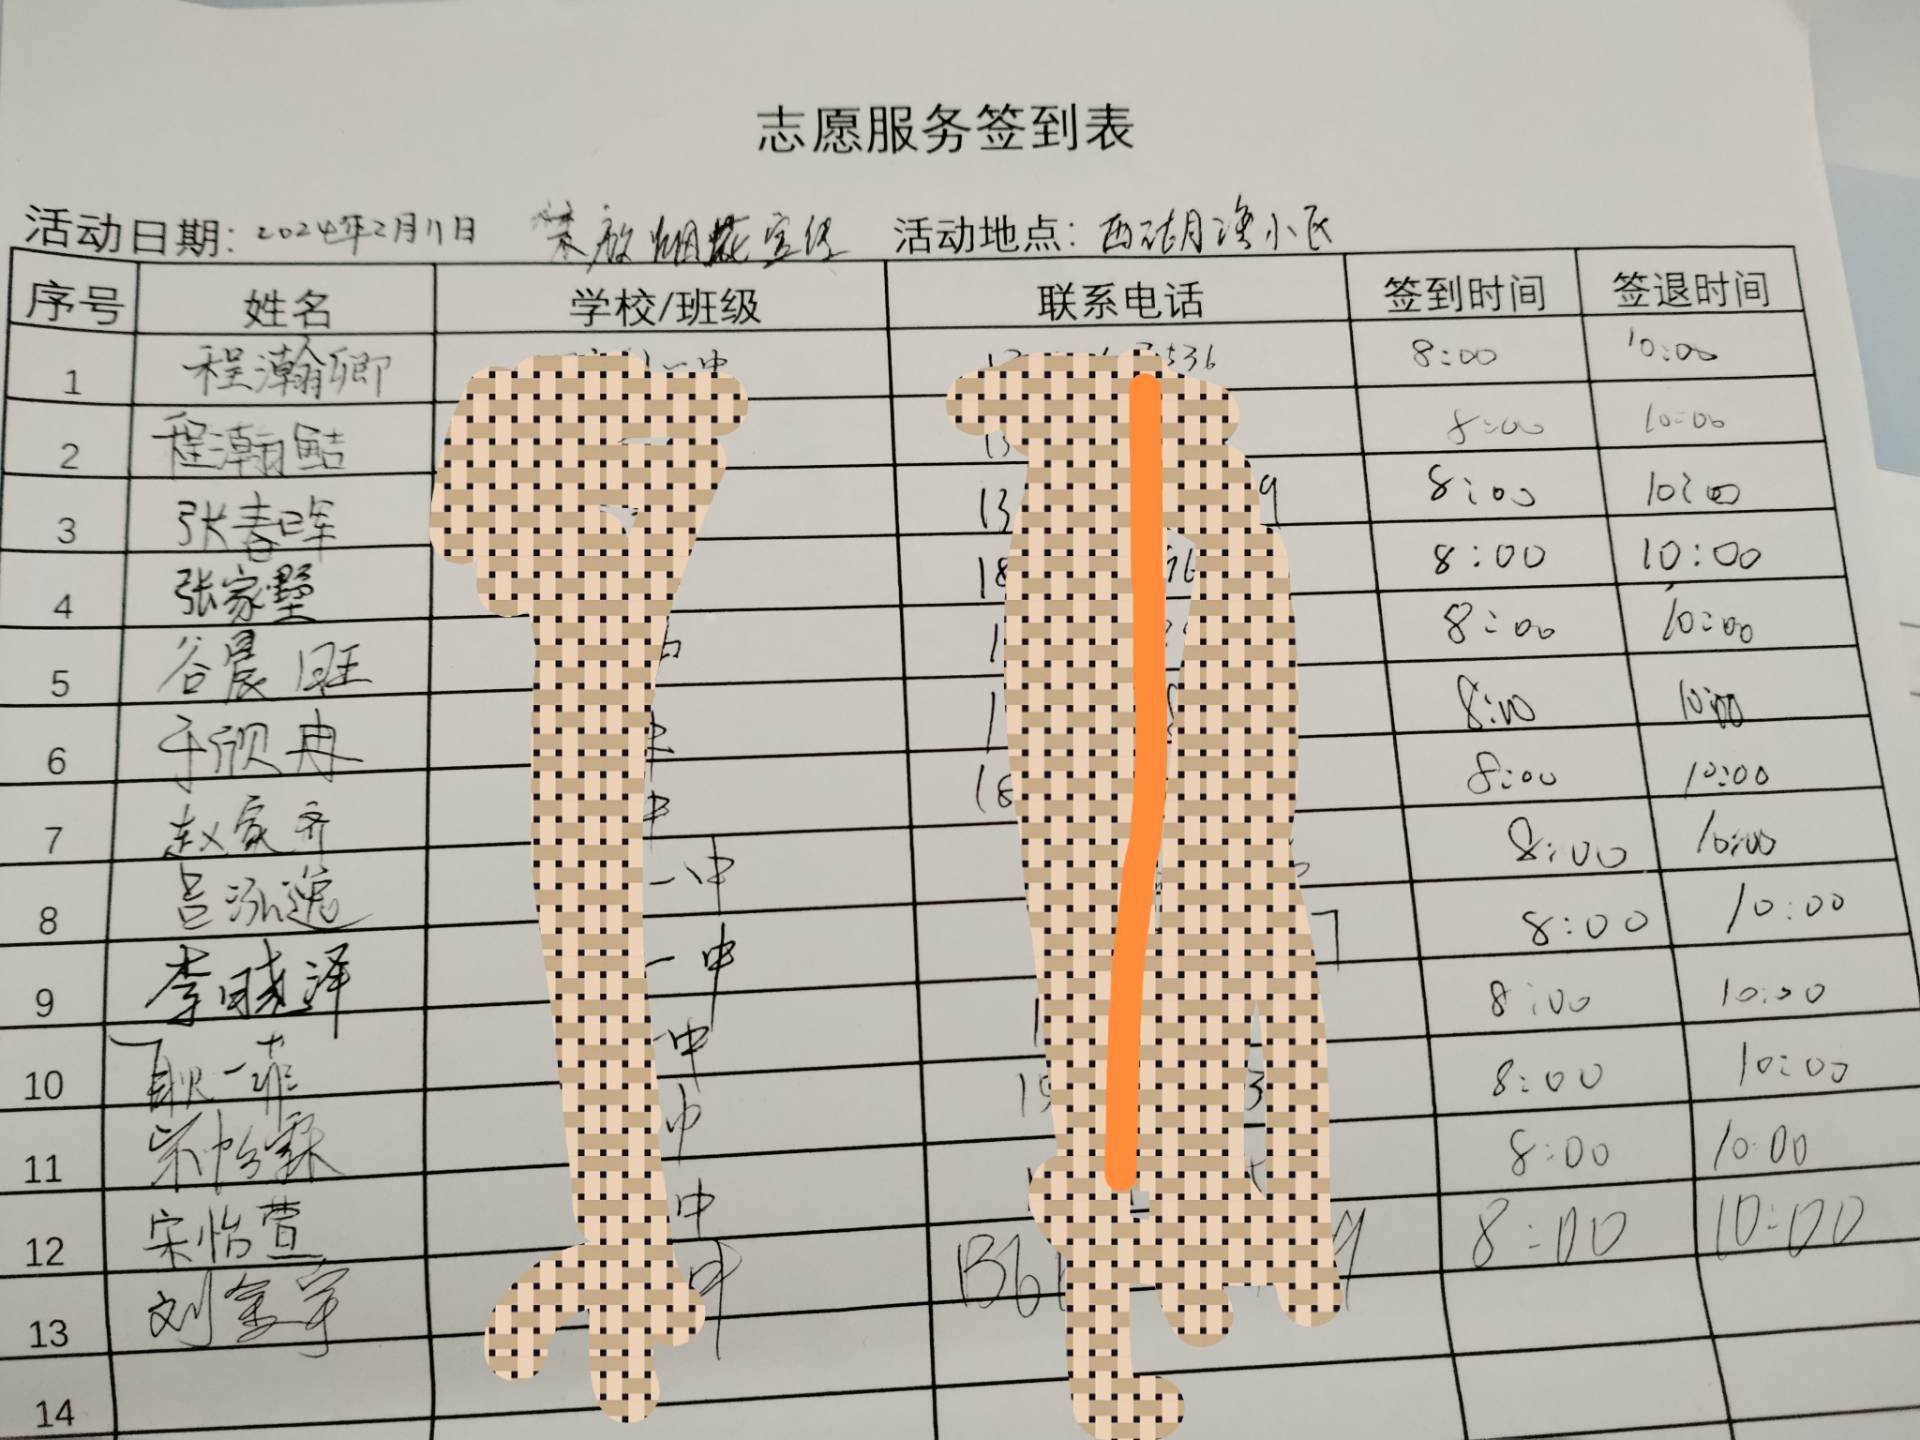 志愿服务签到表
活动日期: 2024年2月11日 禁放烟花宣传 活动地点: 西湖月湾小区
序号 姓名 学校/班级 联系电话 签到时间 签退时间
1 程瀚卿 一中 536 8:00 10:00
2 程瀚 13 8:00 10:00
3 张春晖 13 9 8:00 10:00
4 张家墅 18 8:00 10:00
5 谷晨旺 1 8:00 10:00
6 于欣冉 1 8:00 10:00
7 赵家齐 中 18 8:00 10:00
8 吕泓逸 一中 8:00 10:00
9 李晓泽 一中 7 8:00 10:00
10 耿一菲 一中 1 8:00 10:00
11 宋怡霖 中 15 3 8:00 10:00
12 宋怡萱 中 8:00 10:00
13 刘宇 中 136 9 8:00 10:00
14